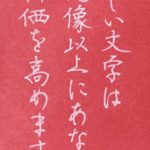 しい文字は
像以上にあな
価を高めます